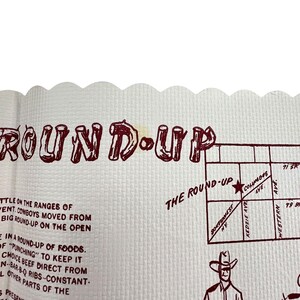 ROUND-UP
THE ROUND-UP
COLUMBUS
AVE.
KEDZIE AVE.
WESTERN
TTLE ON THE RANGES OF
VENT. COWBOYS MOVED FROM
BIG ROUND-UP ON THE OPEN
E IN A ROUND-UP OF FOODS.
OF "PUNCHING" TO KEEP IT
CHOICE BEEF DIRECT FROM
-BAR-B-Q RIBS-CONSTANT-
L OTHER PARTS OF THE